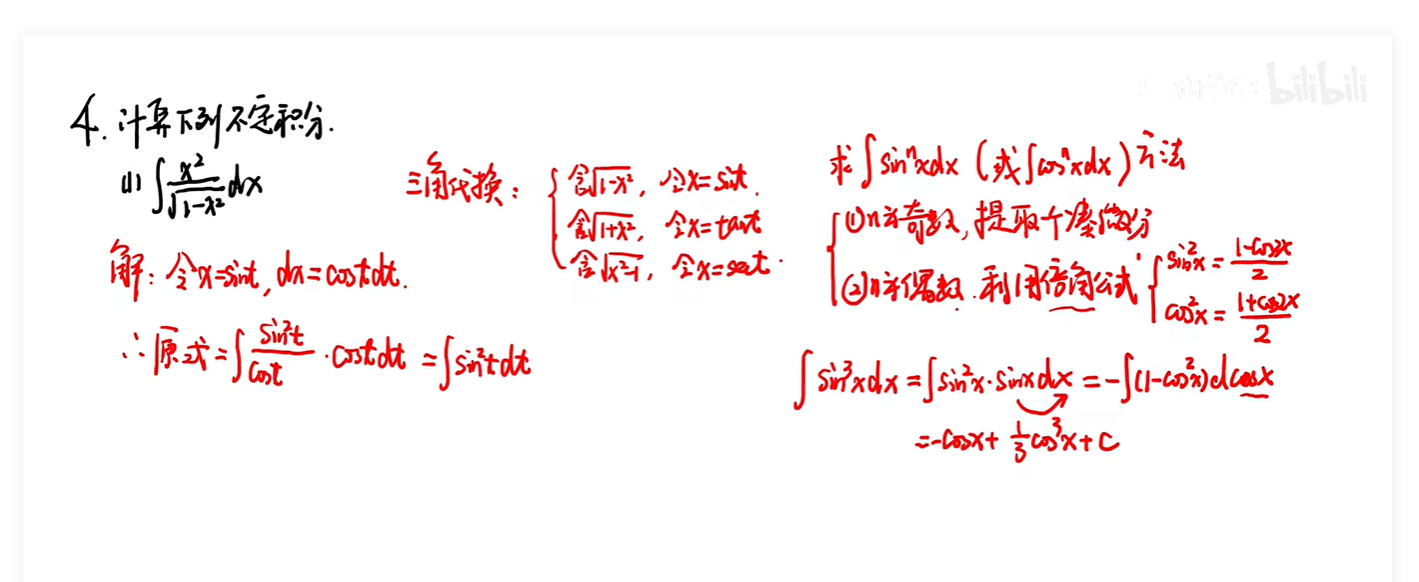 bilibili
4. 计算下列不定积分.
(1) ∫ x²/√(1-x²) dx
解: 令x=sint, dx=costdt.
∴原式=∫ sin²t/cost · costdt = ∫sin²tdt
三角代换:
含√(1-x²), 令x=sint.
含√(1+x²), 令x=tant
含√(x²-1), 令x=sect.
求∫sinⁿxdx (或∫cosⁿxdx) 方法
①n为奇数, 提取个凑微分
②n为偶数. 利用倍角公式
sin²x = (1-cos2x)/2
cos²x = (1+cos2x)/2
∫sin³xdx = ∫sin²x·sinxdx = -∫(1-cos²x)dcosx
=-cosx+ 1/3 cos³x+C